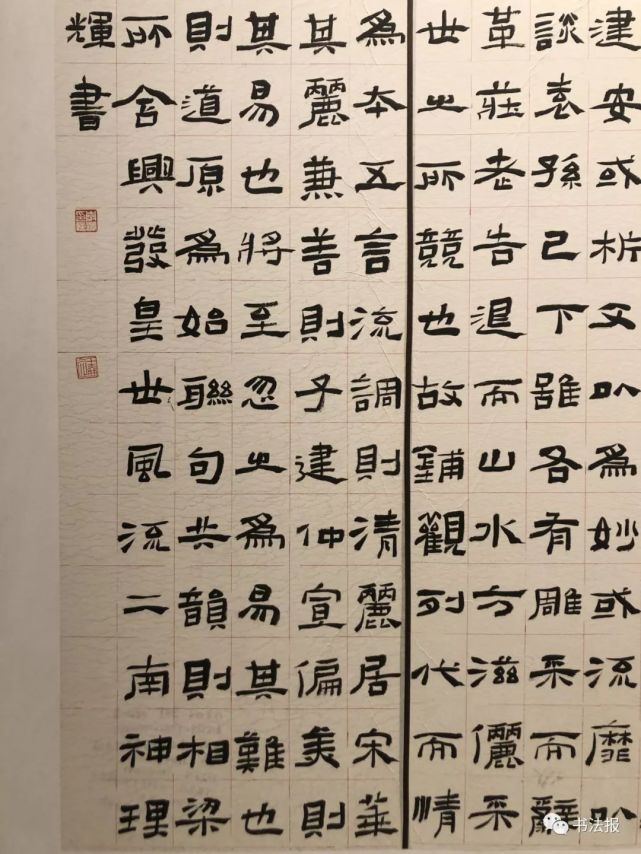 建安或析文以為妙或流靡以
談袁孫已下雖各有雕采而辭
革莊老告退而山水方滋儷采
世之所競也故鋪觀列代而情
為本五言流調則清麗居宋華
其麗兼善則子建仲宣偏美則
其易也將至忽之為易其難也
則道原為始聯句共韻則相梁
所含興發皇世風流二南神理
輝書
书法报